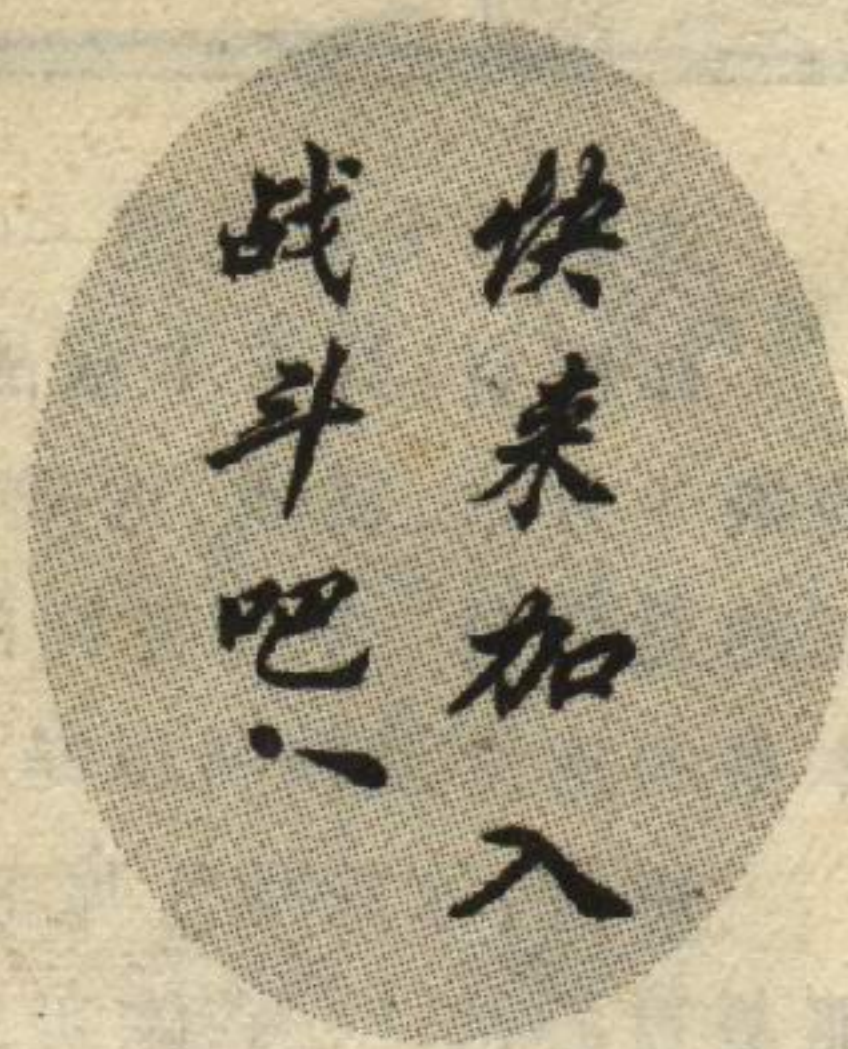 快来加入
战斗吧！